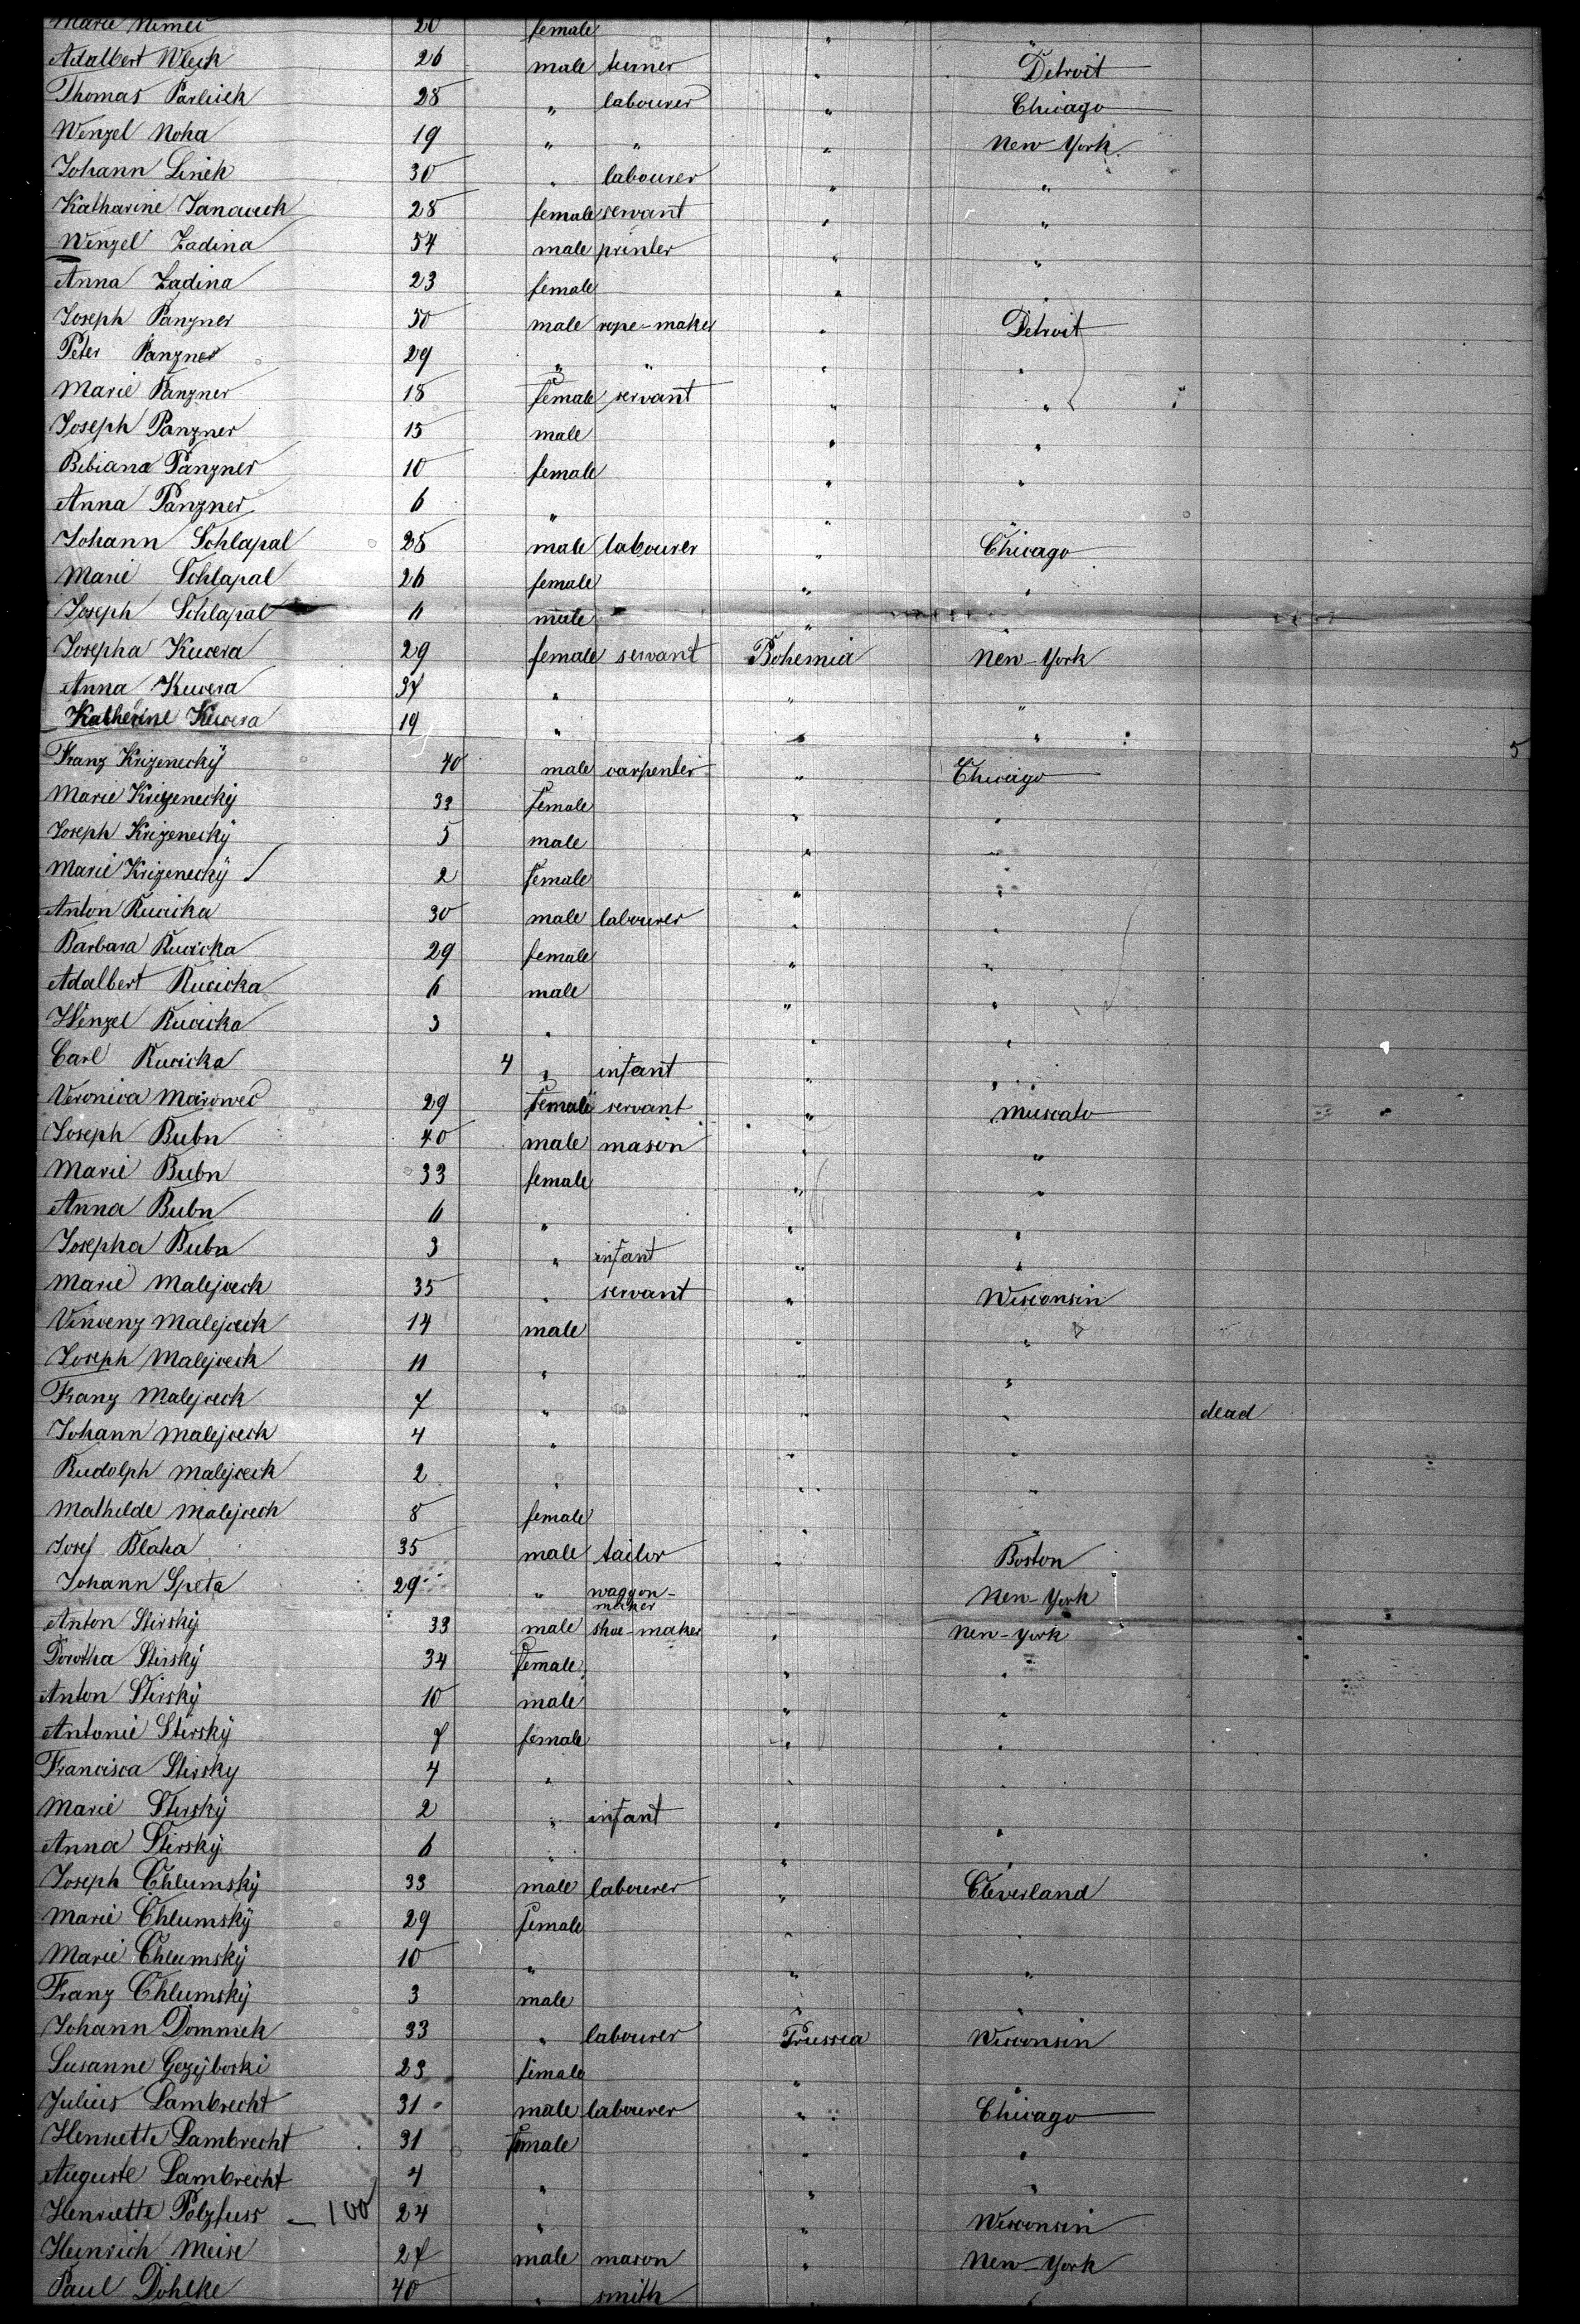 Marie Nemec 20 female "
Adalbert Wlcek 26 male turner " Detroit
Thomas Parlicek 28 " labourer " Chicago
Wenzel Noha 19 " " " New-York
Johann Linek 30 " labourer " "
Katharine Janacek 28 female servant " "
Wenzel Zadina 54 male printer " "
Anna Zadina 23 female " "
Joseph Panzner 50 male rope-maker " Detroit
Peter Panzner 29 " " " "
Marie Panzner 18 female servant " "
Joseph Panzner 15 male " "
Bibiana Panzner 10 female " "
Anna Panzner 6 " " "
Johann Schlapal 28 male labourer " Chicago
Marie Schlapal 26 female " "
Joseph Schlapal 11 male " "
Josepha Kucera 29 female servant Bohemia New-York
Anna Kucera 37 " " "
Katherine Kucera 19 " " "
Franz Krizenecký 40 male carpenter " Chicago 5
Marie Krizenecký 33 female " "
Joseph Krizenecký 5 male " "
Marie Krizenecký 2 female " "
Anton Rucicka 30 male labourer " "
Barbara Rucicka 29 female " "
Adalbert Rucicka 6 male " "
Wenzel Rucicka 3 " " "
Carl Rucicka 4 " infant " "
Veronica Marowec 29 female servant " Muscato
Joseph Bubn 40 male mason " "
Marie Bubn 33 female " "
Anna Bubn 11 " " "
Josepha Bubn 3 " infant " "
Marie Malejcech 35 " servant " Wisconsin
Vincenz Malejcech 14 male " "
Joseph Malejcech 11 " " "
Franz Malejcech 7 " " " dead
Johann Malejcech 4 " " "
Rudolph Malejcech 2 " " "
Mathilde Malejcech 8 female " "
Josef Blaha 35 male tailor " Boston
Johann Speta 29 " waggon-maker New-York
Anton Stirský 33 male shoe-maker " New-York
Dorothea Stirský 34 female " "
Anton Stirský 10 male " "
Antonie Stirský 7 female " "
Francisca Stirsky 4 " " "
Marie Stirský 2 " infant " "
Anna Stirský 6 " " "
Joseph Chlumský 33 male labourer " Cleverland
Marie Chlumský 29 female " "
Marie Chlumský 10 " " "
Franz Chlumský 3 male " "
Johann Domnick 33 " labourer Prussia Wisconsin
Susanne Gezyboski 23 female " "
Julius Lambrecht 31 male labourer " Chicago
Henriette Lambrecht 31 female " "
Auguste Lambrecht 4 " " "
Henriette Polzfuss - 100 24 " " Wisconsin
Heinrich Meise 27 male mason " New-York
Paul Dohlke 40 " smith " "